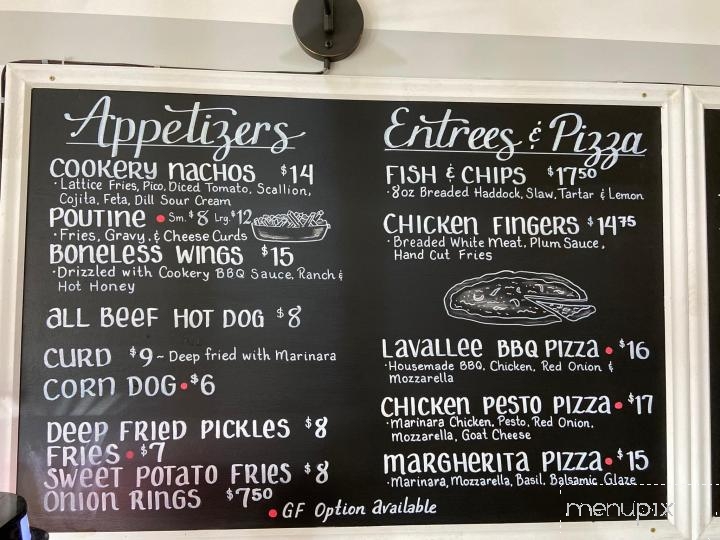 Appetizers
COOKERY NACHOS $14
· Lattice Fries, Pico, Diced Tomato, Scallion,
Cojita, Feta, Dill Sour Cream
POUTINE • Sm. $8 Lrg. $12
· Fries, Gravy, & Cheese Curds
BONELESS WINGS $15
· Drizzled with Cookery BBQ Sauce, Ranch &
Hot Honey
ALL BEEF HOT DOG $8
CURD $9 ~ Deep fried with Marinara
CORN DOG • $6
DEEP FRIED PICKLES $8
FRIES • $7
SWEET POTATO FRIES $8
ONION RINGS $7.50
Entrees & Pizza
FISH & CHIPS $17.50
· 8oz Breaded Haddock, Slaw, Tartar & Lemon
CHICKEN FINGERS $14.75
· Breaded White Meat, Plum Sauce,
Hand Cut Fries
LAVALLEE BBQ PIZZA • $16
· Housemade BBQ, Chicken, Red Onion &
Mozzarella
CHICKEN PESTO PIZZA • $17
· Marinara Chicken, Pesto, Red Onion,
Mozzarella, Goat Cheese
MARGHERITA PIZZA • $15
· Marinara, Mozzarella, Basil, Balsamic Glaze
• GF Option available
menupix